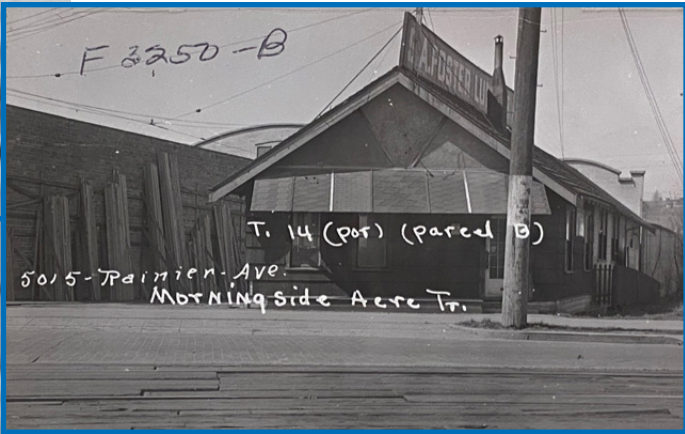 F 3250-B
A. FOSTER LU
T. 14 (por) (parcel B)
5015-Rainier-Ave.
Morningside Acre Tr.